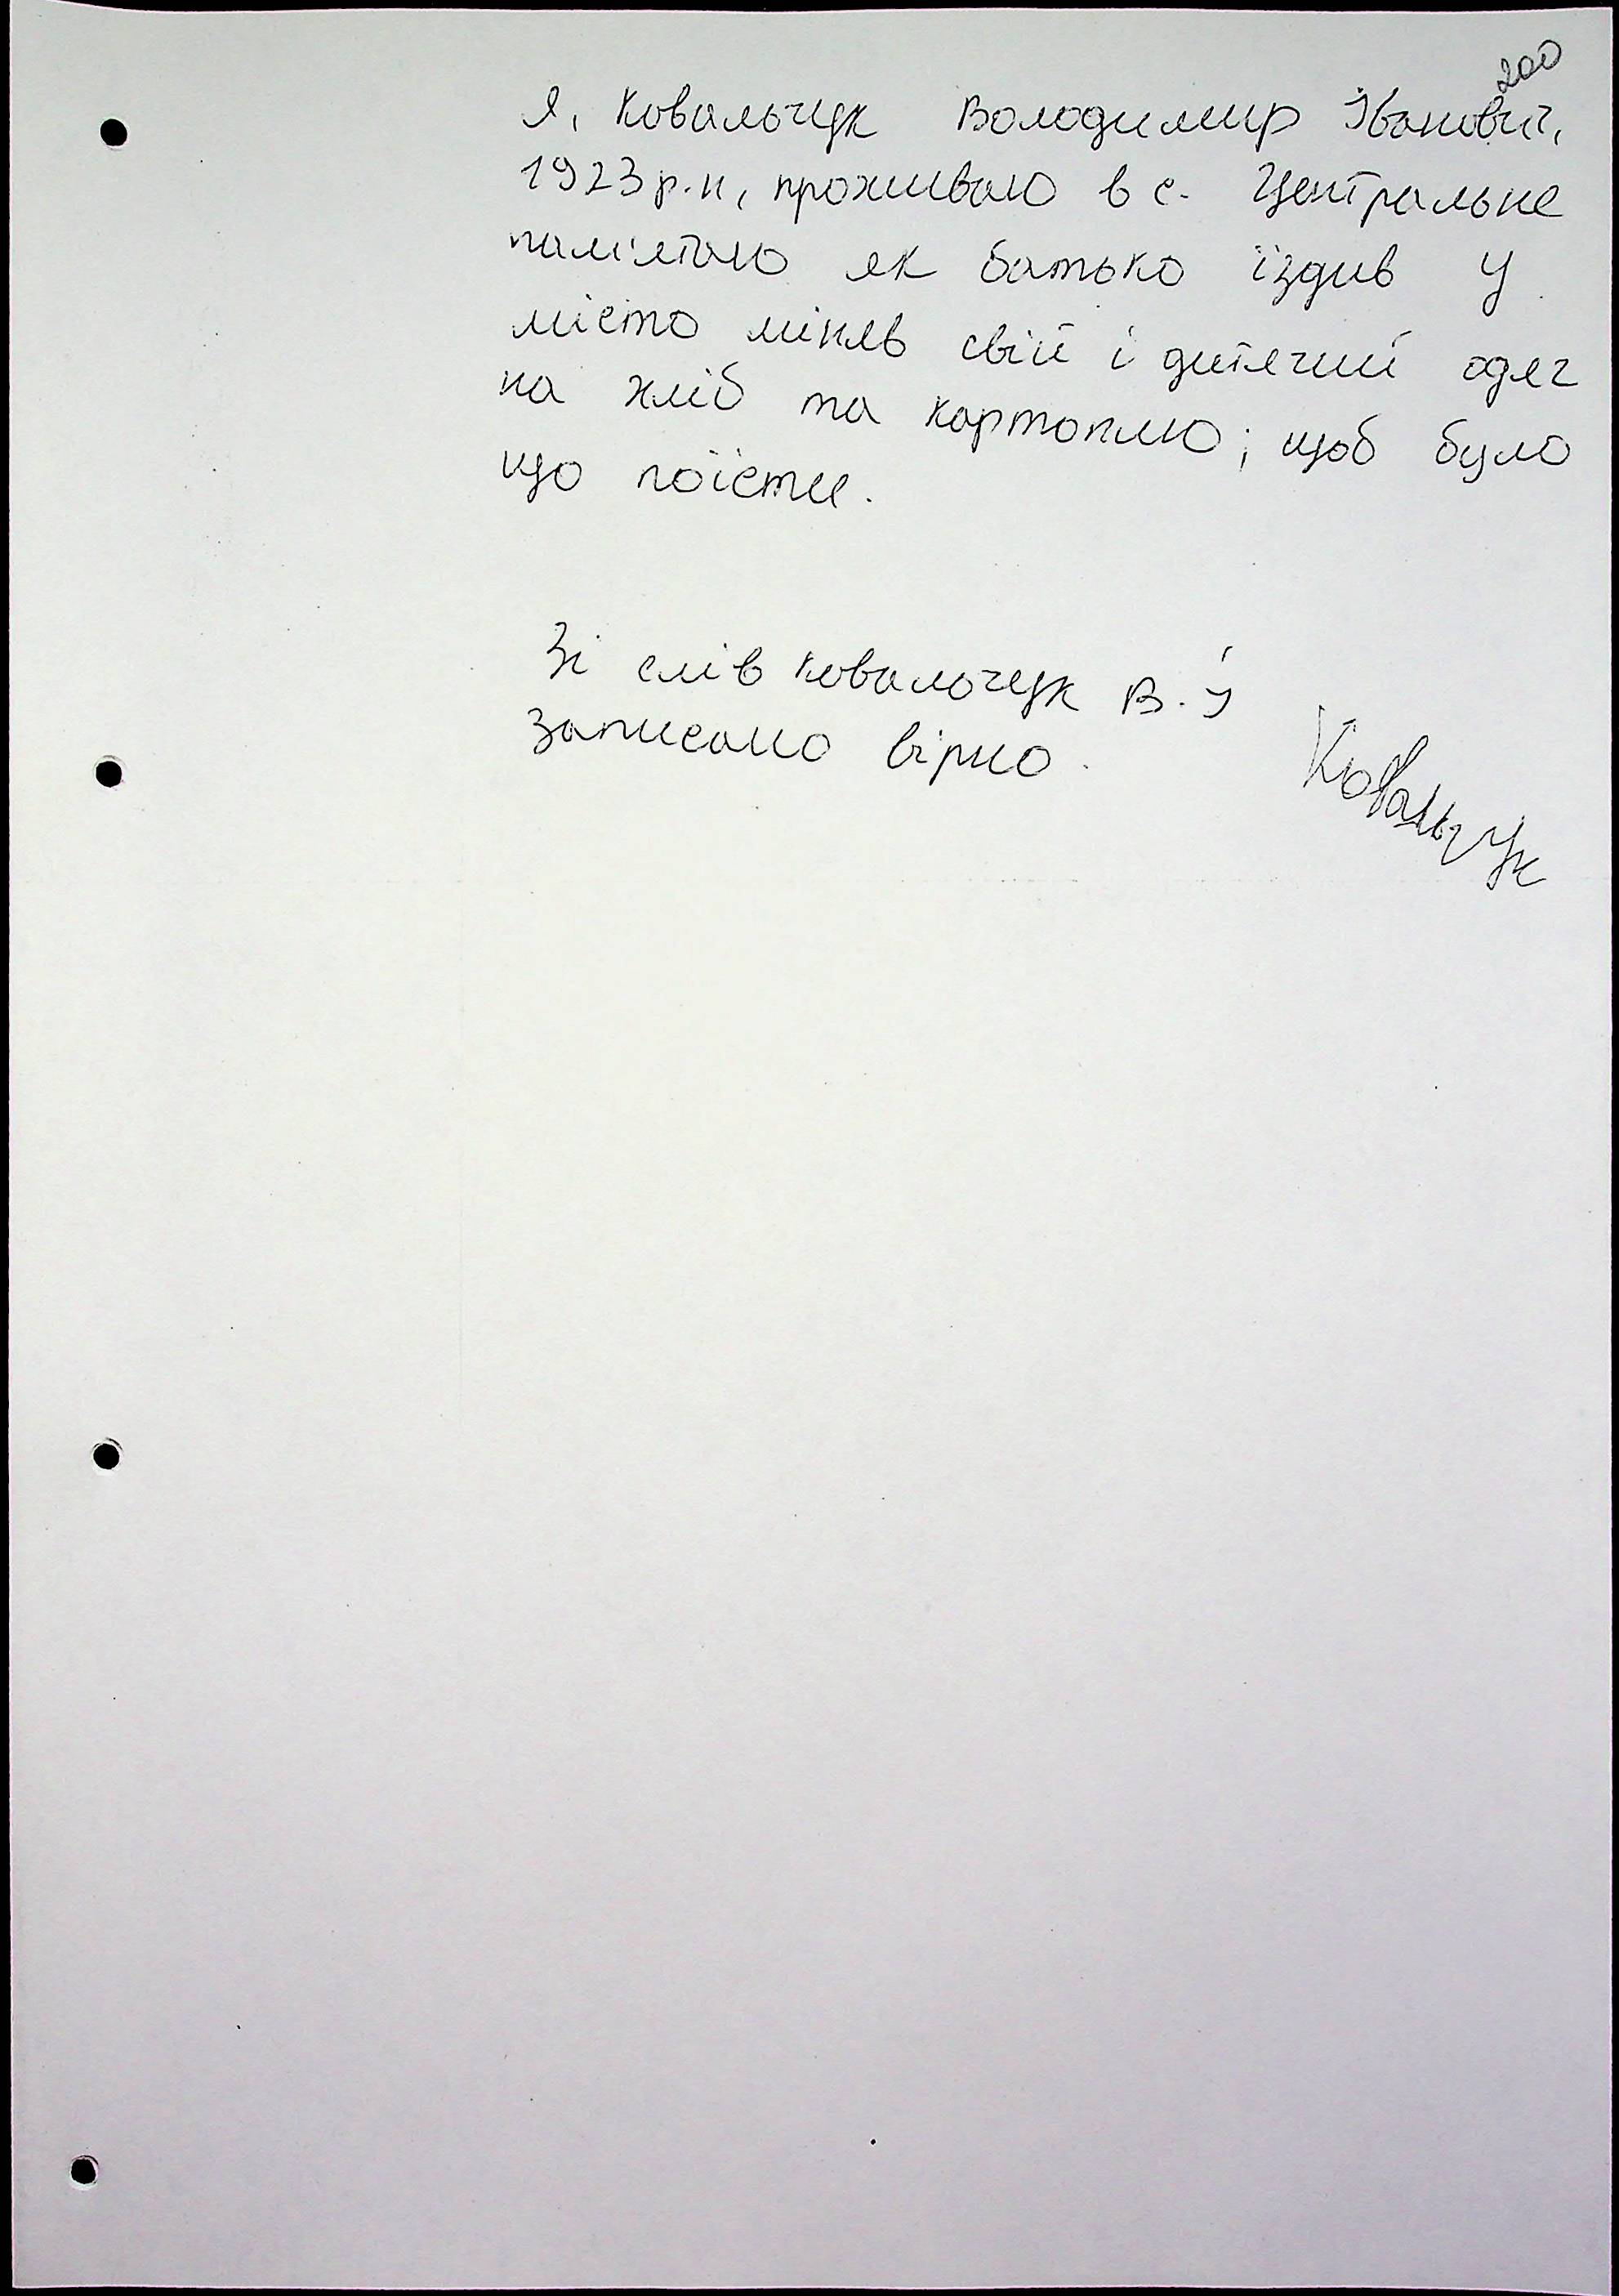 200
Я, Ковальчук Володимир Іванович,
1923 р.н, проживаю в с. Центральне
пам'ятаю як батько їздив у
місто міняв свій і дитячий одяг
на хліб та картоплю; щоб було
що поїсти.
Зі слів Ковальчук В. І
записано вірно.
Ковальчук